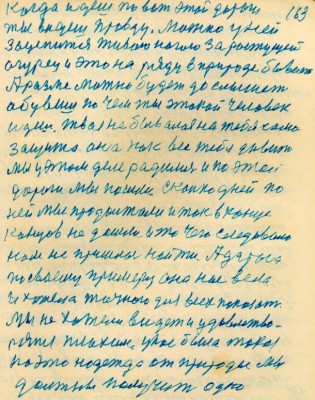 Когда идеш по вот этой дороги 163
ты видеш правду. Можно у ней
зацепится тихого начло за растущей
огурец и это на ряду в природе бывает
А разле можно будет до слышет
обувши по чем ты этакой человек
идеш. твоя не бывалоя на тебя сама
защита. она нас все тебя давит
Мы у этом деле родилися и по этой
дороги мы пошли. сколко дней по
ней мы продолжали и так в конце
концов не дошли. а то чего следовало
нам не пришлось найти. А дорога
по своему примеру она нас вела
и хотела точного для всех показать.
Мы не хотели видет и удовлетво-
рятся плохим. у нас была такая
на это надежда от природы мы
должны получить одно